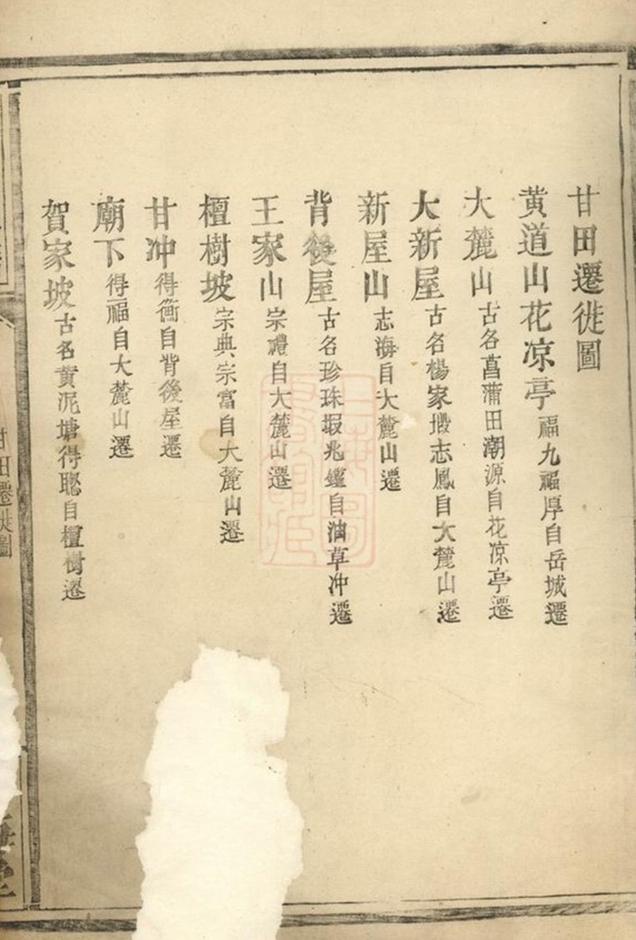 甘田遷徙圖
黄道山花凉亭 福九福厚自岳城遷
大麓山 古名菖蒲田潮源自花凉亭遷
大新屋 古名楊家塅志鳳自大麓山遷
新屋山 志海自大麓山遷
背後屋 古名珍珠塅兆鑑自油草冲遷
王家山 宗禮自大麓山遷
檀樹坡 宗典宗富自大麓山遷
甘冲 得衡自背後屋遷
廟下 得福自大麓山遷
賀家坡 古名黄泥塘得聪自檀樹遷
甘田遷徙圖
堂